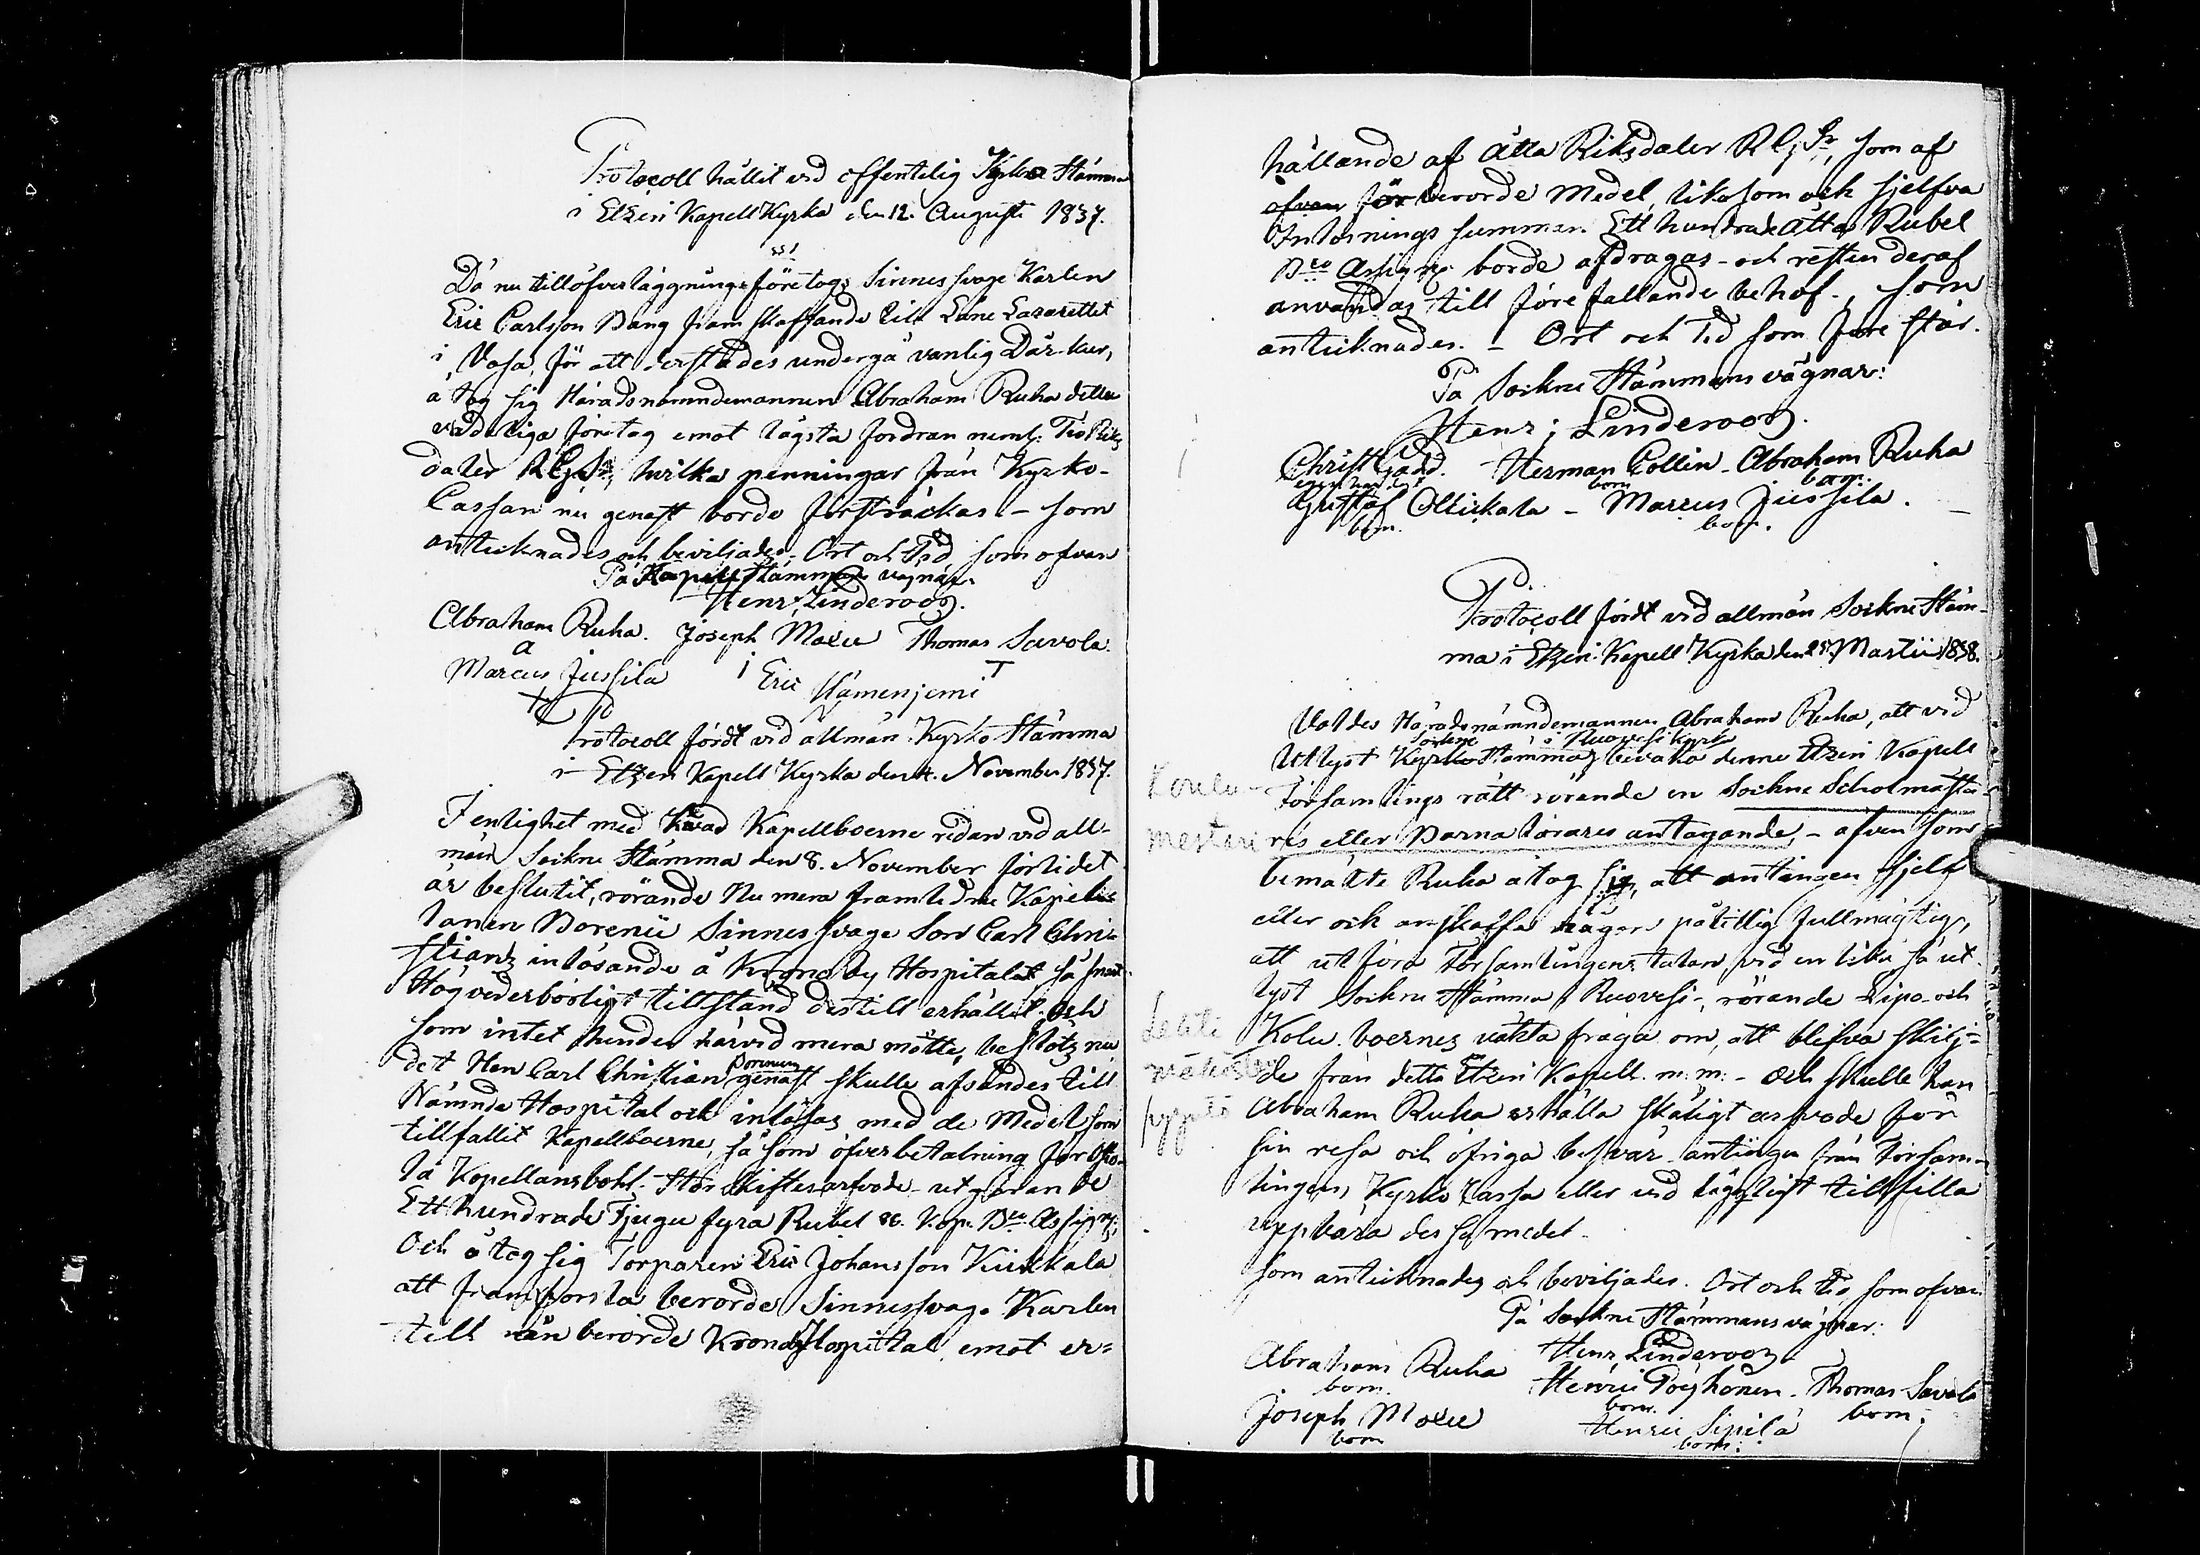 Protocoll hållit vid offentelig Kyrko Stämma
i Etzeri Kapell Kyrka den 12. Augusti 1837.
§§1
Då nu till öfverläggning företogs Sinnessvage Karlen
Eric Carlsson Bang fram skaffande till Läne Lazarettet
i Vasa, för att derstädes undergå vanlig Dår-kur,
å tog sig Häradsnämndemannen Abraham Ruha detta
företag emot lägsta fordran neml: Tio Riks
daler RGSr, hvilka penningar från Kyrko-
Cassan nu genast borde försträckas – som
antecknades och beviljades. Ort och Tid som ofvan
På Kapell Stämmans vägnar
Henr: Linderoos.
Abraham Ruha. Joseph Moxu Thomas Savola.
Marcus Jussila Eric Hämenjemi
Protocoll fördt vid allmän Kyrko Stämma
i Etzeri Kapell Kyrka den 4. November 1837.
I enlighet med hvad Kapellboerne redan vid all-
män Sockne Stämma den 8. November förlidet
år beslutit, rörande Nu mera framledne Kapel-
lanen Borenii Sinnessvage Son Carl Chri-
stians inlösande å Kronoby Hospitalet så snart
Högvederbörligt tillstånd dertill erhållit. Och
som intet hinder härvid mera mötte, beslöts nu
det Hen Carl Christian Borenius genast skulle afsändes till
Nämnde Hospital och inlösas med de Medel som
tillfallit Kapellboerne, så som öfverbetalning för
la Kapellansbohl. Stor Skiftesarfvode utgörande
Ett hundrade Tjugu fyra Rubel 86. Kop. Bco Assign:
Och å tog sig Torparen Eric Johansson Kiukkala
att framforsla berörde Sinnessvage Karlen
till än berörde Kronoby Hospital, emot er-
hållande af Åtta Riksdaler RGSr, som af
ofvan förberörde Medel, likasom och sjelfva
Inlösnings summan Ett hundrade åtta Rubel
Bco Assign: borde afdragas – och resten deraf
användas till förefallande behof., som
antecknades. – Ort och Tid som före står.
På Sockne Stämmans vägnar:
Henr; Linderoos.
Christ Gadd. Herman Collin – Abraham Ruha
egenhändigt bom bom.
Gustaf Ollikala – Marcus Jussila.
bom. bom.
Protocoll fördt vid allmän Sockne Stäm-
ma i Etzeri Kapell Kyrka den 25. Martii 1838.
Valdes Häradsnämndemannen Abraham Ruha, att vid
Sockne i Ruovesi Kyrka
Utlyst Kyrko Stämma, bevaka denne Etzeri Kapell
Koulu-
Församlings rätt rörande en Sockne Scholmästa-
mestari
res eller Barna lärares antagande, – äfven som
bemälte Ruha åtog sig, att antingen sjelf
eller ock anskaffa någon pålitlig fullmägtig,
att utföra Församlingens talan, vid en lika så ut-
lyst Sockne Stämma i Ruovesi, rörande Lipo- och
Kolu. boernes väkta fråga om, att blifva skilj-
de från detta Etzeri Kapell m: m: – Och skulle han
Abraham Ruha erhålla skäligt arfvode för
sin resa och öfriga besvär antingen från Försam-
lingens Kyrko Cassa eller vid lägligt tillfälle
uppbära dessa medel.
Som antecknades och beviljades. Ort och tid som ofvan
På Sockne Stämmans vägnar:
Henr Linderoos
Abraham Ruha Henric Pöyhönen. Thomas Savola
bom. bom. bom;
Joseph Moxu Henric Sipilä
bom bom: